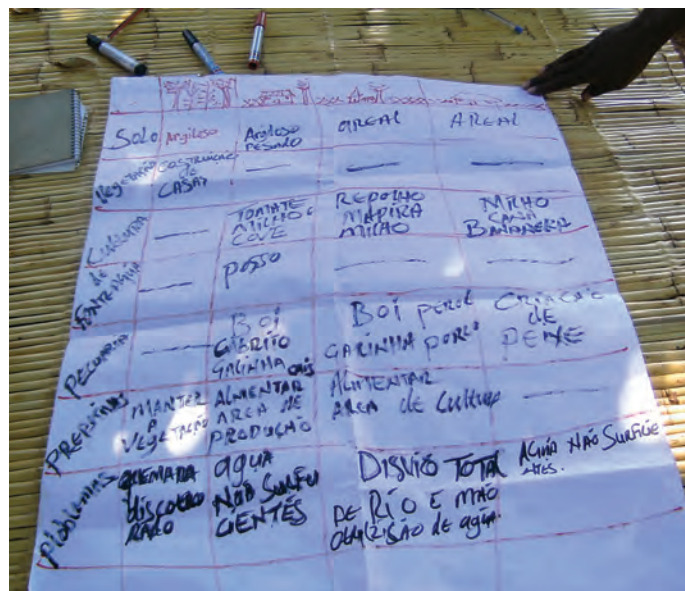 Solo Argiloso Argiloso pesado areal AREAL
Vegetação COSTRUÇÃO de CASAS
TOMATE MILHO COVE REPOLHO MAPIRA MILHO MILHO CANA BANANEIRA
FONTE de AGUA POSSO
PECUARIA BOI CABRITO GALINHA BOI GARINHA PORCO CRIACAE DE PEIXE
MANTER A VEGETAÇÃO ALMENTAR AREA DE PRODUCÃO ALIMENTAR AREA de Cultura
Ploblemas QUEMADA água NÃO SURFICIENTES DISVIO TOTAL DE RIO E MAO de agua. AGUA NÃO SURFICIE NTES.